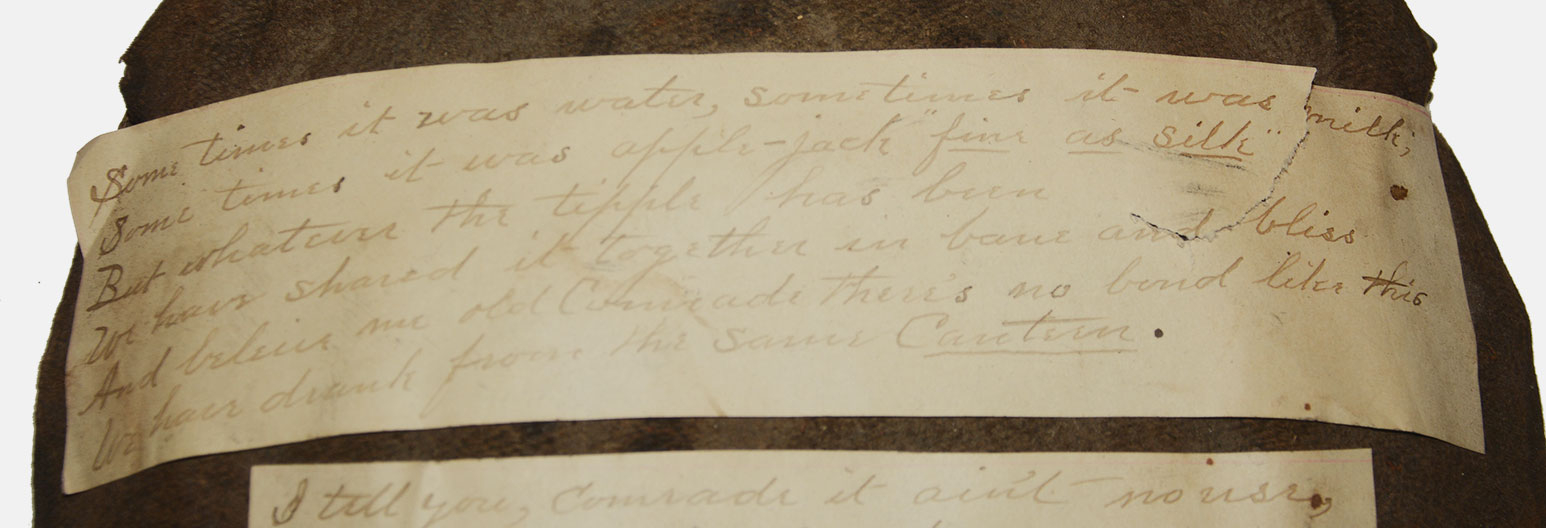 Some times it was water, sometimes it was milk,
Some times it was apple-jack "fine as silk"
But whatever the tipple has been
We have shared it together in bane and bliss
And beleive me old Comrade there's no bond like this
We have drank from the same Canteen.
I tell you, Comrade it ain't no use,